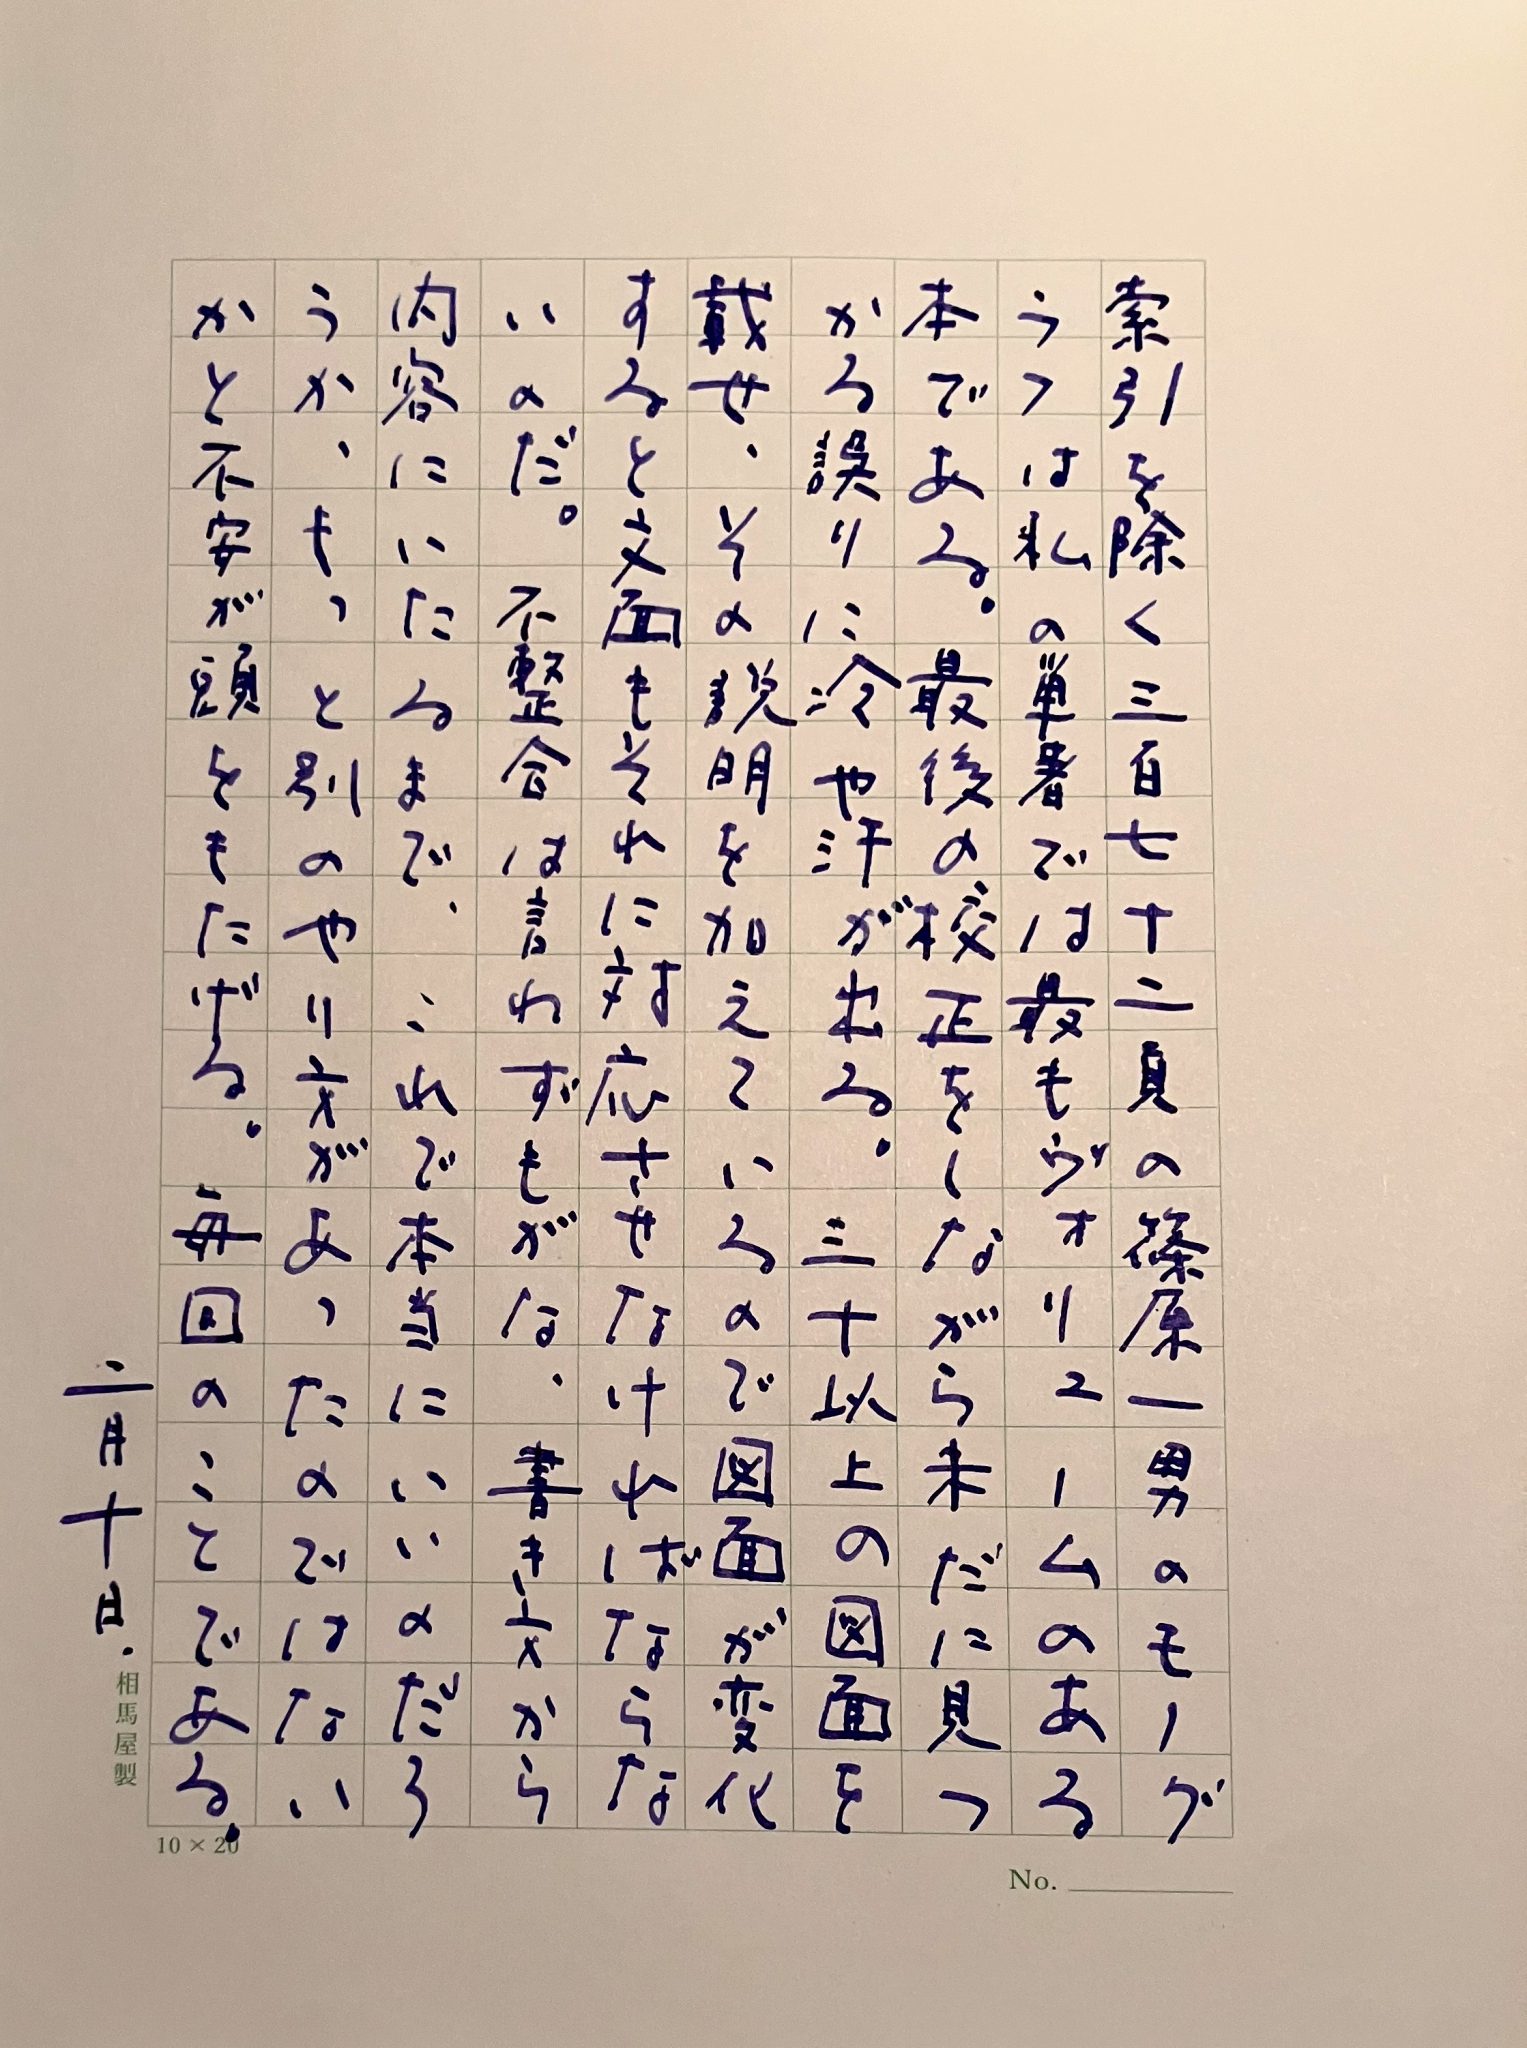 索引を除く三百七十二頁の篠原一男のモーグ
ラフは私の単著では最もヴォリュームのある
本である。最後の校正をしながら未だに見つ
かる誤りに冷や汗が出る。三十以上の図面を
載せ、その説明を加えているので図面が変化
すると文面もそれに対応させなければならな
いのだ。不整合は言わずもがな、書き方から
内容にいたるまで、これで本当にいいのだろ
うか、もっと別のやり方があったのではない
かと不安が頭をもたげる。毎回のことである。
二月十日.
相馬屋製
10×20
No.